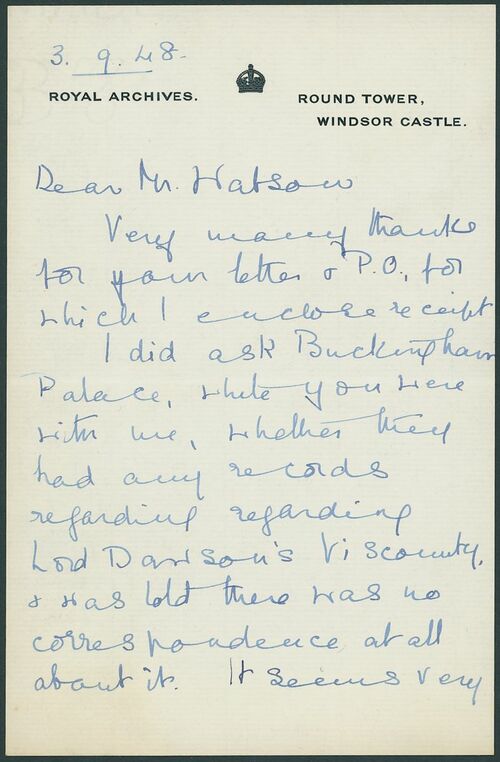 3. 9. 48.
ROYAL ARCHIVES.
ROUND TOWER,
WINDSOR CASTLE.
Dear Mr. Watson
Very many thanks
for your letter & P.O., for
which I enclose receipt
I did ask Buckingham
Palace, while you were
with me, whether they
had any records
regarding regarding
Lord Dawson's Viscounty,
& was told there was no
correspondence at all
about it. It seems very